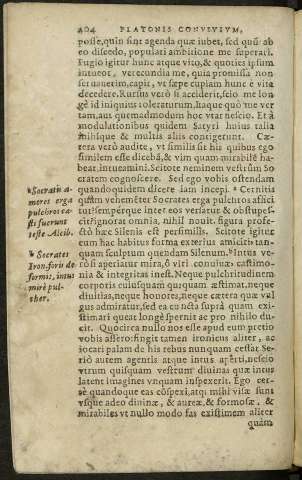 404 PLATONIS CONVIVIVM,
posse, quin sint agenda quæ iubet, sed quũ ab
eo discedo, populari ambitione me superari.
Fugio igitur hunc atque vito, & quoties ipsum
intueor, verecundia me, quia promissa non
seruauerim, capit, vt sæpe cupiam hunc è vita
decedere. Rursus verò si acciderit, scio me lon
gè id iniquius toleraturum, Itaque quò me ver
tam, aut quemadmodum hoc vtar nescio. Et à
modulationibus quidem Satyri huius talia
mihique & multis aliis contigerunt. Cæ-
tera verò audite, vt similis sit his quibus ego
similem esse dicebã, & vim quam mirabilẽ ha-
beat, intueamini. Scitote neminem vestrûm So
cratem cognoscere. Sed ego vobis ostendam
quandoquidem dicere iam incepi. * Cernitis
quãm vehemẽter Socrates erga pulchros affici
tur: sempérque inter eos versatur & obstupes-
cit: ignorat omnia, nihil nouit. figura profe-
ctò hæc Silenis est persimilis. Scitote igitur
eum hac habitus forma exterius amiciri: tan-
quam sculptum quendam Silenum. *Intus ve-
rò si aperiatur mira, ô viri conuiuæ castimo-
nia & integritas inest. Neque pulchritudinem
corporis cuiusquam quicquam æstimat, neque
diuitias, neque honores, neque cætera quæ vul
gus admiratur, sed ea cuncta suprà quam exi-
stimari queat longè spernit ac pro nihilo du-
cit. Quocirca nullo nos esse apud eum pretio
vobis assero: fingit tamen ironicus aliter, ac
iocari palam de his rebus nunquam cessat. Se-
riò autem agentis atque intus aperti, nescio
vtrum quisquam vestrûm diuinas quæ intus
latent imagines vnquam inspexerit. Ego cer-
tè quandoque eas cõspexi, atq; mihi visæ sunt
vsque adeo diuinæ, & aureæ, & formosæ, &
mirabiles vt nullo modo fas existimem aliter
quàm
*Socratis a-
mores erga
pulchros ca-
sti fuerunt
teste Alcib.
* Socrates
foris de
formis, intus
mirè pul-
cher.